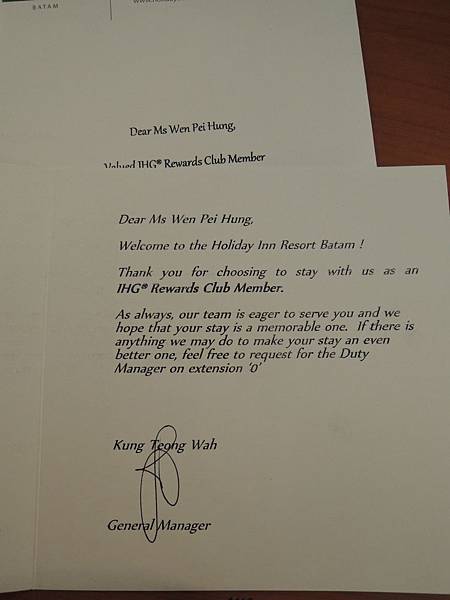 BATAM
Dear Ms Wen Pei Hung,
Valued IHG® Rewards Club Member
Dear Ms Wen Pei Hung,
Welcome to the Holiday Inn Resort Batam !
Thank you for choosing to stay with us as an
IHG® Rewards Club Member.
As always, our team is eager to serve you and we
hope that your stay is a memorable one. If there is
anything we may do to make your stay an even
better one, feel free to request for the Duty
Manager on extension '0'
Kung Teong Wah
General Manager